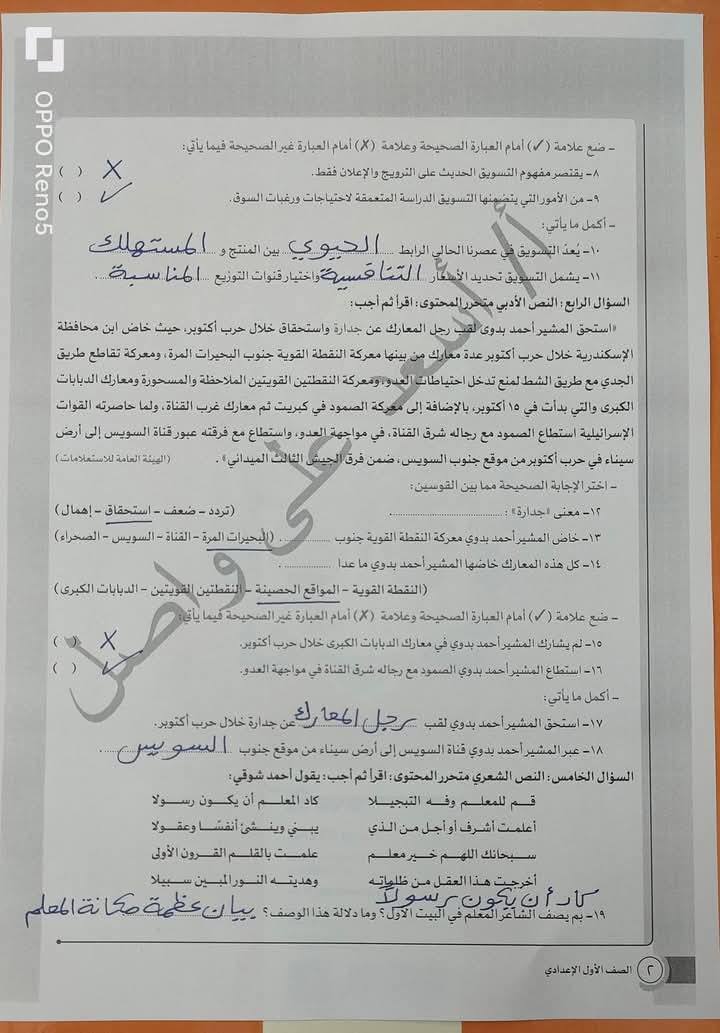 OPPO Reno5
- ضع علامة (✓) أمام العبارة الصحيحة وعلامة (✗) أمام العبارة غير الصحيحة فيما يأتي:
٨- يقتصر مفهوم التسويق الحديث على الترويج والإعلان فقط. ( ) X
٩- من الأمور التي يتضمنها التسويق الدراسة المتعمقة لاحتياجات ورغبات السوق. ( ) ✓
- أكمل ما يأتي:
١٠- يُعدّ التسويق في عصرنا الحالي الرابط الحيوي بين المنتج و المستهلك
١١- يشمل التسويق تحديد الأسعار التنافسية واختيار قنوات التوزيع المناسبة.
السؤال الرابع: النص الأدبي متحرر المحتوى: اقرأ ثم أجب:
«استحق المشير أحمد بدوي لقب رجل المعارك عن جدارة واستحقاق خلال حرب أكتوبر، حيث خاض ابن محافظة
الإسكندرية خلال حرب أكتوبر عدة معارك من بينها معركة النقطة القوية جنوب البحيرات المرة، ومعركة تقاطع طريق
الجدي مع طريق الشط لمنع تدخل احتياطات العدو، ومعركة النقطتين القويتين الملاحظة والمسحورة ومعارك الدبابات
الكبرى والتي بدأت في ١٥ أكتوبر، بالإضافة إلى معركة الصمود في كبريت ثم معارك غرب القناة، ولما حاصرته القوات
الإسرائيلية استطاع الصمود مع رجاله شرق القناة، في مواجهة العدو، واستطاع مع فرقته عبور قناة السويس إلى أرض
سيناء في حرب أكتوبر من موقع جنوب السويس، ضمن فرق الجيش الثالث الميداني». (الهيئة العامة للاستعلامات)
- اختر الإجابة الصحيحة مما بين القوسين:
١٢- معنى «جدارة»: .................... (تردد - ضعف - استحقاق - إهمال)
١٣- خاض المشير أحمد بدوي معركة النقطة القوية جنوب ............ . (البحيرات المرة - القناة - السويس - الصحراء)
١٤- كل هذه المعارك خاضها المشير أحمد بدوي ما عدا ............ .
(النقطة القوية - المواقع الحصينة - النقطتين القويتين - الدبابات الكبرى)
- ضع علامة (✓) أمام العبارة الصحيحة وعلامة (✗) أمام العبارة غير الصحيحة فيما يأتي:
١٥- لم يشارك المشير أحمد بدوي في معارك الدبابات الكبرى خلال حرب أكتوبر. ( ) X
١٦- استطاع المشير أحمد بدوي الصمود مع رجاله شرق القناة في مواجهة العدو. ( ) ✓
- أكمل ما يأتي:
١٧- استحق المشير أحمد بدوي لقب رجل المعارك عن جدارة خلال حرب أكتوبر.
١٨- عبر المشير أحمد بدوي قناة السويس إلى أرض سيناء من موقع جنوب السويس.
السؤال الخامس: النص الشعري متحرر المحتوى: اقرأ ثم أجب: يقول أحمد شوقي:
قـم للمعلـم وفـه التبجيـلا كاد المعلـم أن يكـون رسـولا
أعلمـت أشرف أو أجل مـن الـذي يبـني وينـشئ أنفسًـا وعقـولا
سـبحانك اللهـم خـير معلـم علمـت بالقلـم القـرون الأولى
أخرجـت هـذا العقـل مـن ظلماتـه وهديتـه النـور المبـين سـبيلا
كاد أن يكون رسولاً
١٩- بم يصف الشاعر المعلم في البيت الأول؟ وما دلالة هذا الوصف؟ بيان عظمة مكانة المعلم
٢ الصف الأول الإعدادي
أ/ أسعد على واصل